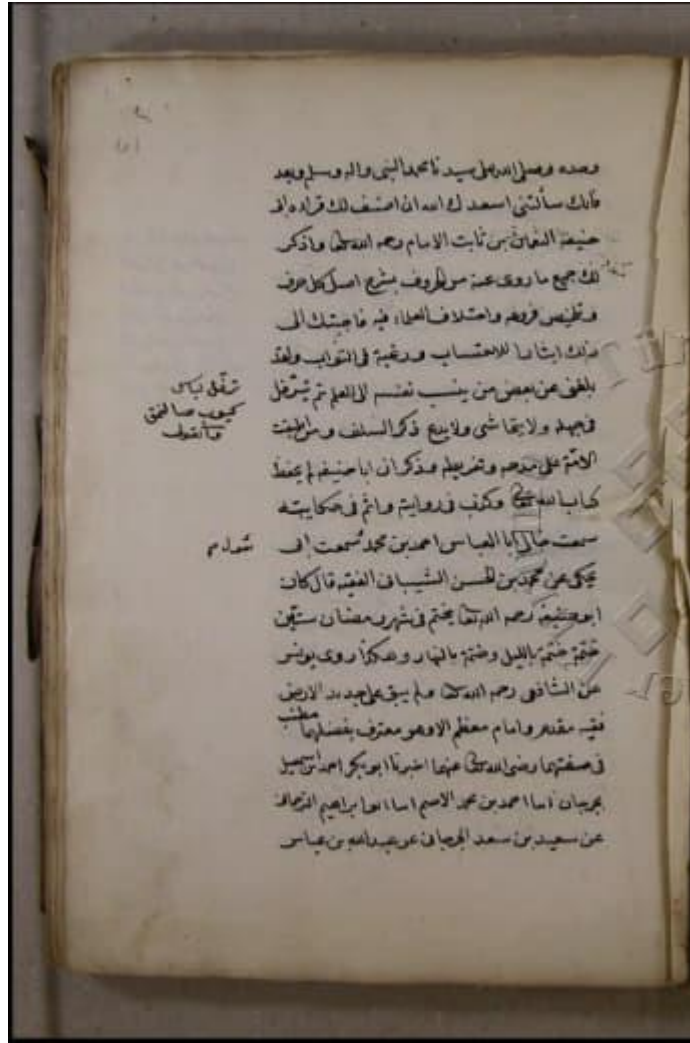 وحده وصلى الله على سيدنا محمد النبي واله وسلم وبعد
فانك سألتني اسعدك الله ان اصنف لك قراءة ابى
حنيفة النعمان بن ثابت الامام رحمه الله تعالى واذكر
لك جميع ما روى عنه من الحروف بشرح اصل كل حرف
وتلخيص فروعه واختلاف العلماء فيه فاجبتك الى
ذلك ايثارا للاحتساب ورغبة في الثواب ولقد
بلغنى عن بعض من ينسب نفسه الى العلم ثم يترفل
في جهله ولا يتحاشى ولا يدع ذكر السلف ومن اطبقت
الامة على مدحه وتقريظه وذكر ان ابا حنيفة لم يحفظ
كتاب الله تعالى وكذب في روايته واثم في حكايته
سمعت خالى ابا العباس احمد بن محمد سمعت ابى
يحكى عن محمد بن الحسن الشيبانى الفقيه قال كان
ابو حنيفة رحمه الله تعالى يختم في شهر رمضان ستين
ختمة ختمة بالليل وختمة بالنهار وهكذا روى يونس
عن الشافعى رحمه الله تعالى ولم يبق على جديد الارض
فقيه مقدم وامام معظم الا وهو معترف بفضلهما
في صفتهما رضى الله تعالى عنهما اخبرنا ابو بكر احمد بن اسمعيل
بجرجان انبا احمد بن محمد الاصم انبا ابو ابراهيم
عن سعيد بن سعد الجرجانى عن عبدالله بن عباس
ترفل لباس